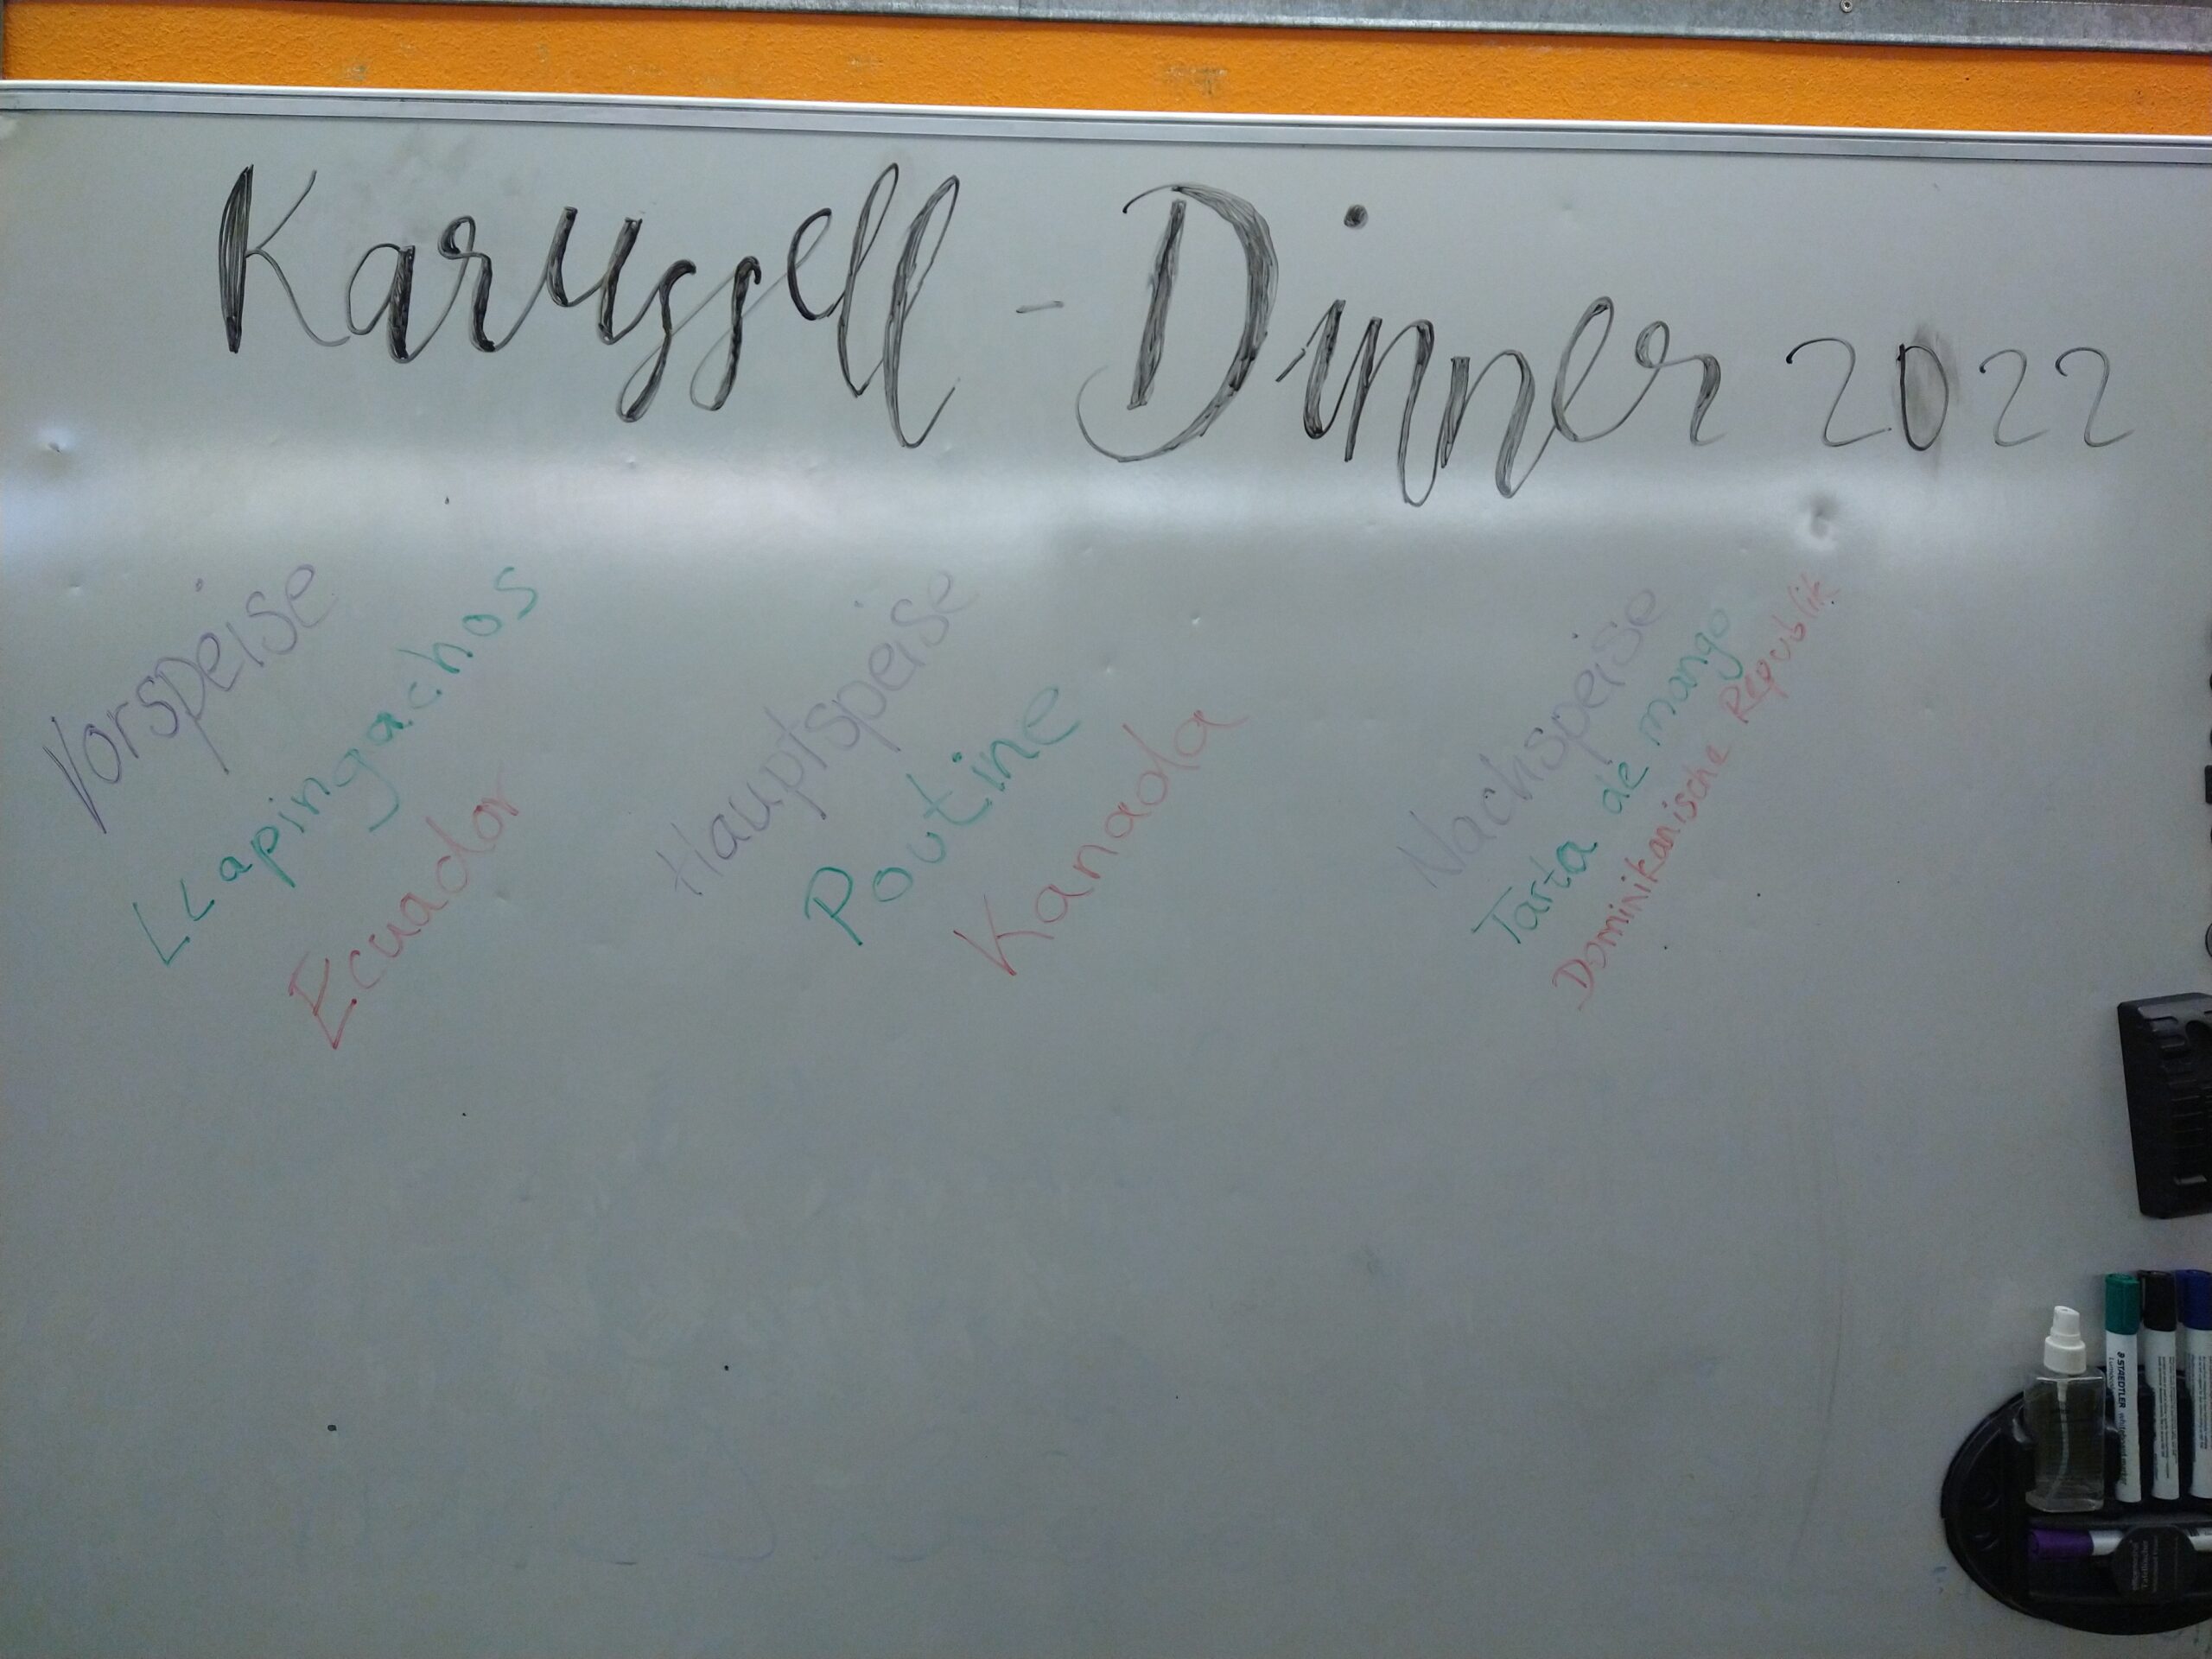 Karussell - Dinner 2022
Vorspeise
LLapingachos
Ecuador
Hauptspeise
Poutine
Kanada
Nachspeise
Tarta de mango
Dominikanische Republik
STAEDTLER